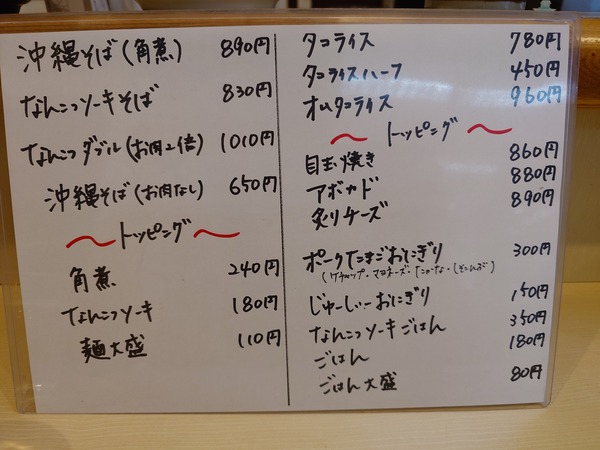 沖縄そば(角煮) 890円
なんこつソーキそば 830円
なんこつダブル(お肉2倍) 1010円
沖縄そば(お肉なし) 650円
〜トッピング〜
角煮 240円
なんこつソーキ 180円
麺大盛 110円
タコライス 780円
タコライスハーフ 450円
オムタコライス 960円
〜トッピング〜
目玉焼き 860円
アボカド 880円
炙りチーズ 890円
ポークたまごおにぎり 300円
(ケチャップ・マヨネーズ・
じゅーしぃーおにぎり 150円
なんこつソーキごはん 350円
ごはん 180円
ごはん大盛 80円